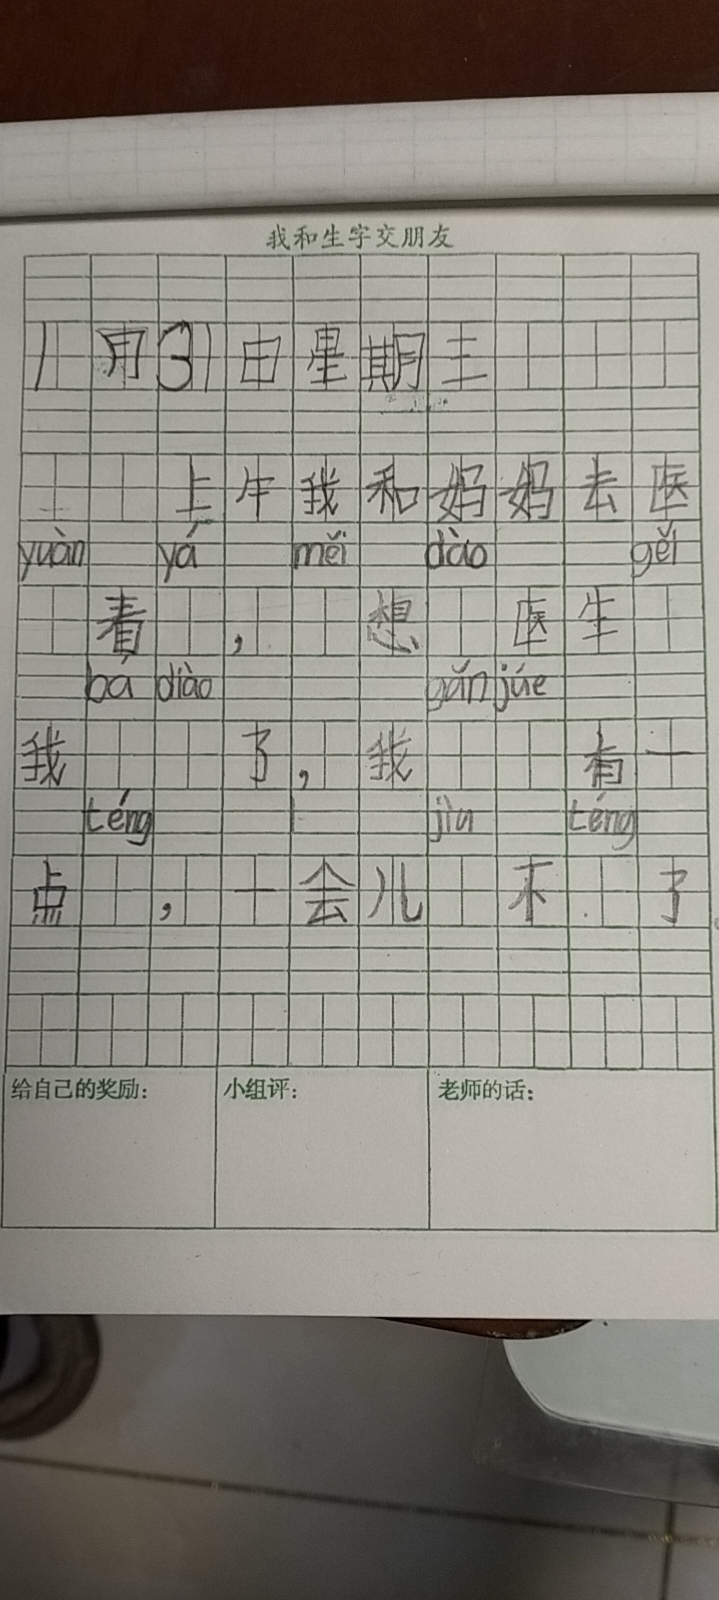 我和生字交朋友
1月31日星期三
上午我和妈妈去医
yuàn yá měi dào gěi
看，想医生
bá diào gǎn júe
我了，我有一
téng jìu téng
点，一会儿不了
给自己的奖励： 小组评： 老师的话：